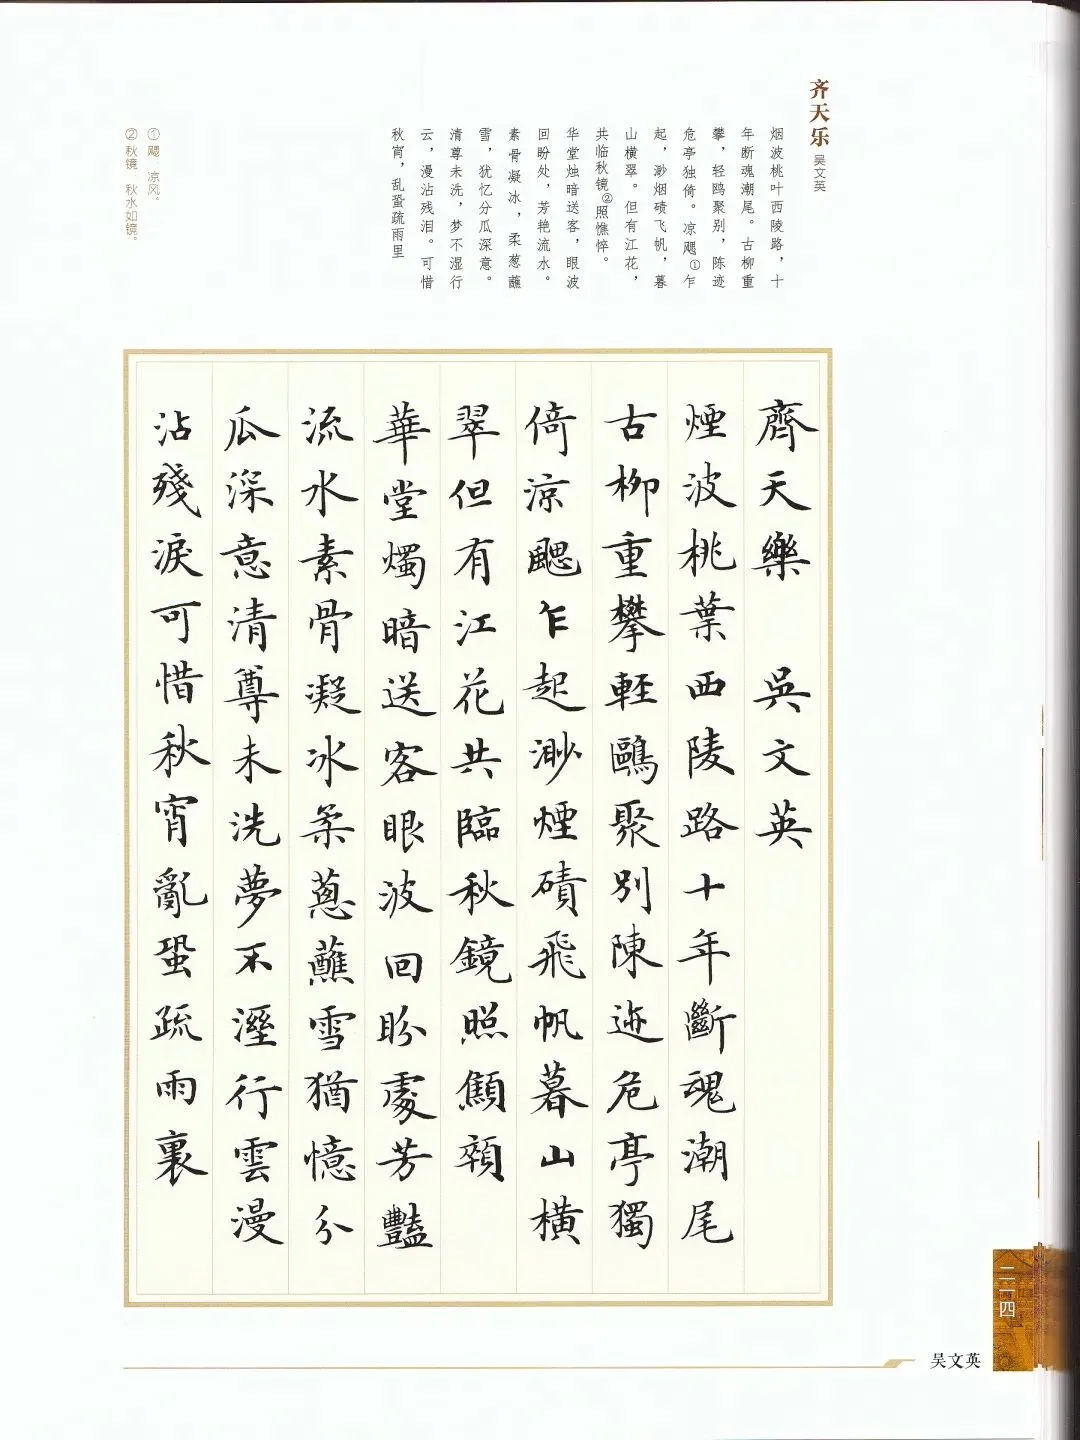 齐天乐
吴文英
烟波桃叶西陵路，十
年断魂潮尾。古柳重
攀，轻鸥聚别，陈迹
危亭独倚。凉飔①乍
起，渺烟碛飞帆，暮
山横翠。但有江花，
共临秋镜②照憔悴。
华堂烛暗送客，眼波
回盼处，芳艳流水。
素骨凝冰，柔葱蘸
雪，犹忆分瓜深意。
清尊未洗，梦不湿行
云，漫沾残泪。可惜
秋宵，乱蛩疏雨里
① 飔 凉风。
② 秋镜 秋水如镜。
齊天樂 吳文英
煙波桃葉西陵路十年斷魂潮尾
古柳重攀輕鷗聚別陳迹危亭獨
倚涼颸乍起渺煙磧飛帆暮山橫
翠但有江花共臨秋鏡照顦顇
華堂燭暗送客眼波回盼處芳豔
流水素骨凝冰柔蔥蘸雪猶憶分
瓜深意清尊未洗夢不溼行雲漫
沾殘淚可惜秋宵亂蛩疏雨裏
二一四
吴文英